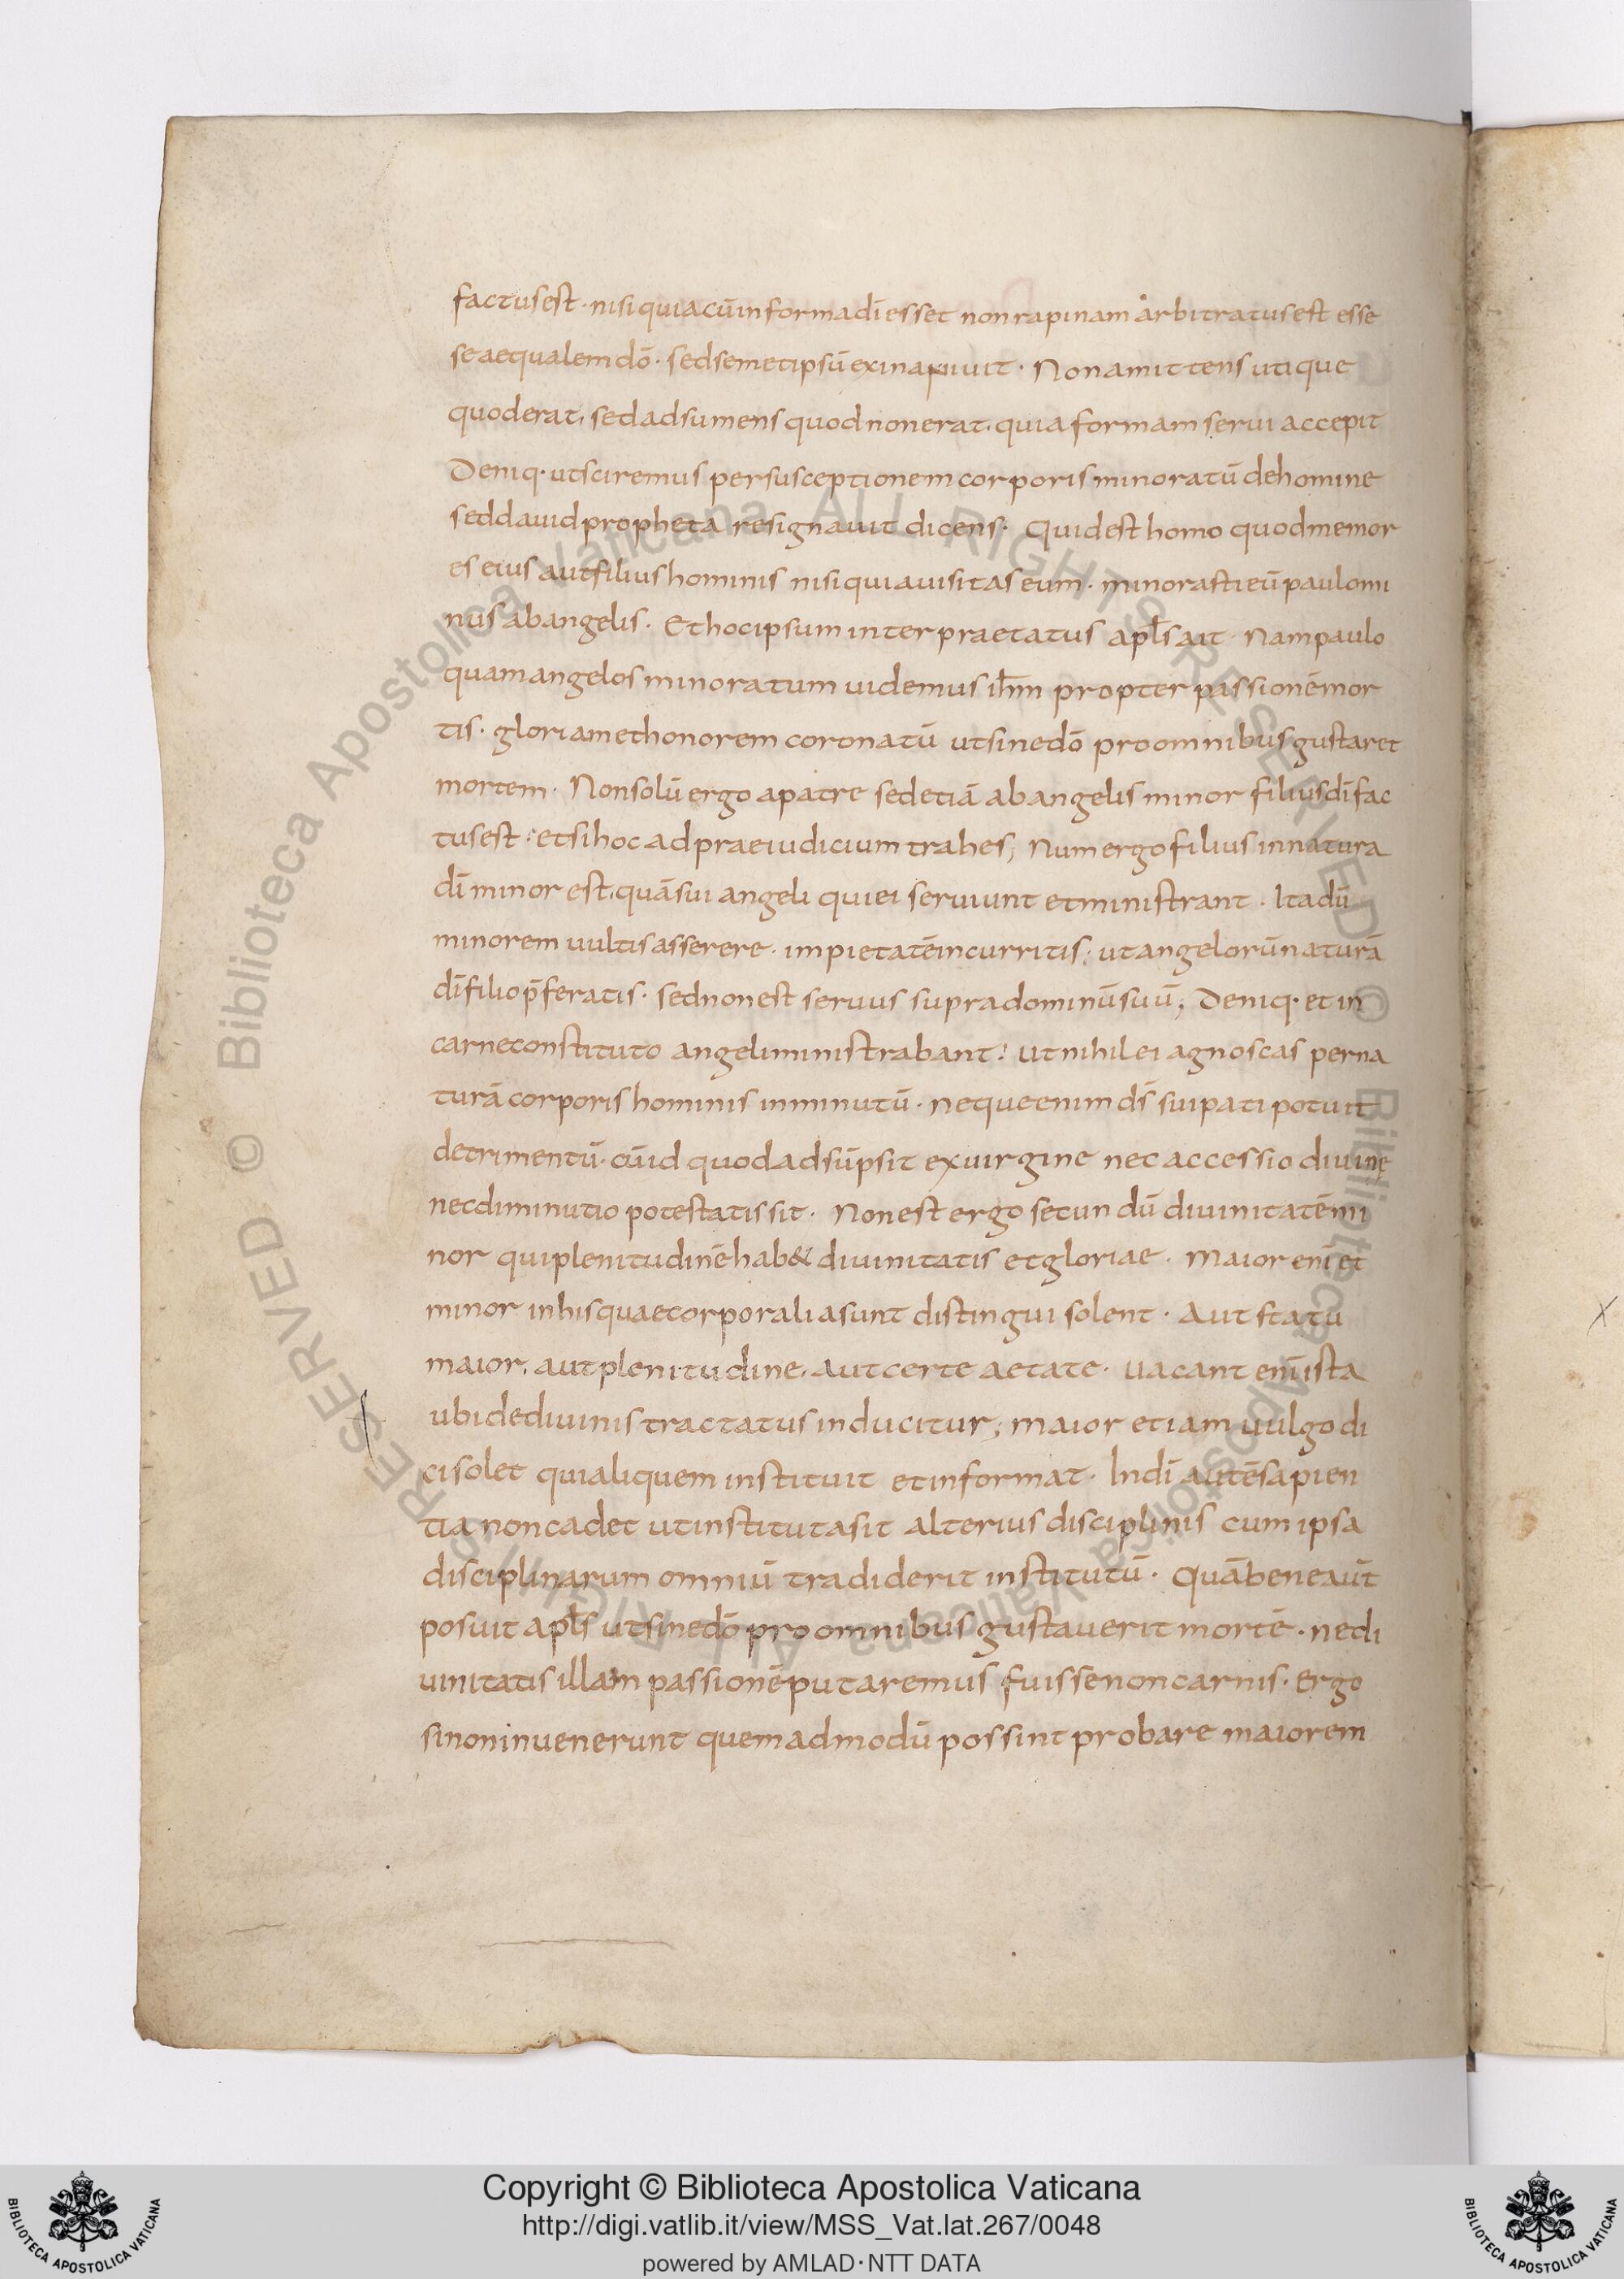 factus est · nisi quia cū in forma dī esset non rapinam arbitratus est esse
se aequalem dō · sed semetipsū exinaniuit · Non amittens utique
quod erat, sed adsumens quod non erat, quia formam serui accepit
Deniq· ut sciremus per susceptionem corporis minoratū de homine
sed dauid propheta resignauit dicens · Quid est homo quod memor
es eius aut filius hominis nisi quia uisitas eum · minorasti eū paulo mi
nus ab angelis · Et hoc ipsum interpraetatus apl̄s ait · Nam paulo
quam angelos minoratum uidemus ih̄m propter passionē mor
tis · gloriam et honorem coronatū ut sine dō pro omnibus gustaret
mortem · Non solū ergo a patre sed etiā ab angelis minor filius dī fac
tus est · et si hoc ad praeiudicium trahes; Num ergo filius in natura
dī minor est, quā sui angeli qui ei seruiunt et ministrant · Ita dū
minorem uultis asserere · impietatē incurritis · ut angelorū naturā
dī filio p̄feratis · sed non est seruus supra dominū suū; Deniq· et in
carne constituto angeli ministrabant! ut nihil ei agnoscas per na
turā corporis hominis inminutū · neque enim ds̄ sui pati potuit
detrimentū · cū id quod adsūpsit ex uirgine nec accessio diuinę
nec diminutio potestatis sit · Non est ergo secundū diuinitatē mi
nor qui plenitudinē hab& diuinitatis et gloriae · Maior enī et
minor in his quae corporalia sunt distingui solent · Aut statu
maior, aut plenitudine, aut certe aetate · uacant enī ista
ubi de diuinis tractatus inducitur; maior etiam uulgo di
ci solet qui aliquem instituit et informat · In dī autē sapien
tia non cadet ut instituta sit alterius disciplinis cum ipsa
disciplinarum omniū tradiderit institutū · Quā bene aūt
posuit apl̄s ut sine dō pro omnibus gustauerit mortē · ne di
uinitatis illam passionē putaremus fuisse non carnis · Ergo
si non inuenerunt quemadmodū possint probare maiorem
© Biblioteca Apostolica Vaticana ALL RIGHTS RESERVED © Biblioteca Apostolica Vaticana ALL RIGHTS RESERVED
Copyright © Biblioteca Apostolica Vaticana
http://digi.vatlib.it/view/MSS_Vat.lat.267/0048
powered by AMLAD · NTT DATA
BIBLIOTECA APOSTOLICA VATICANA
BIBLIOTECA APOSTOLICA VATICANA